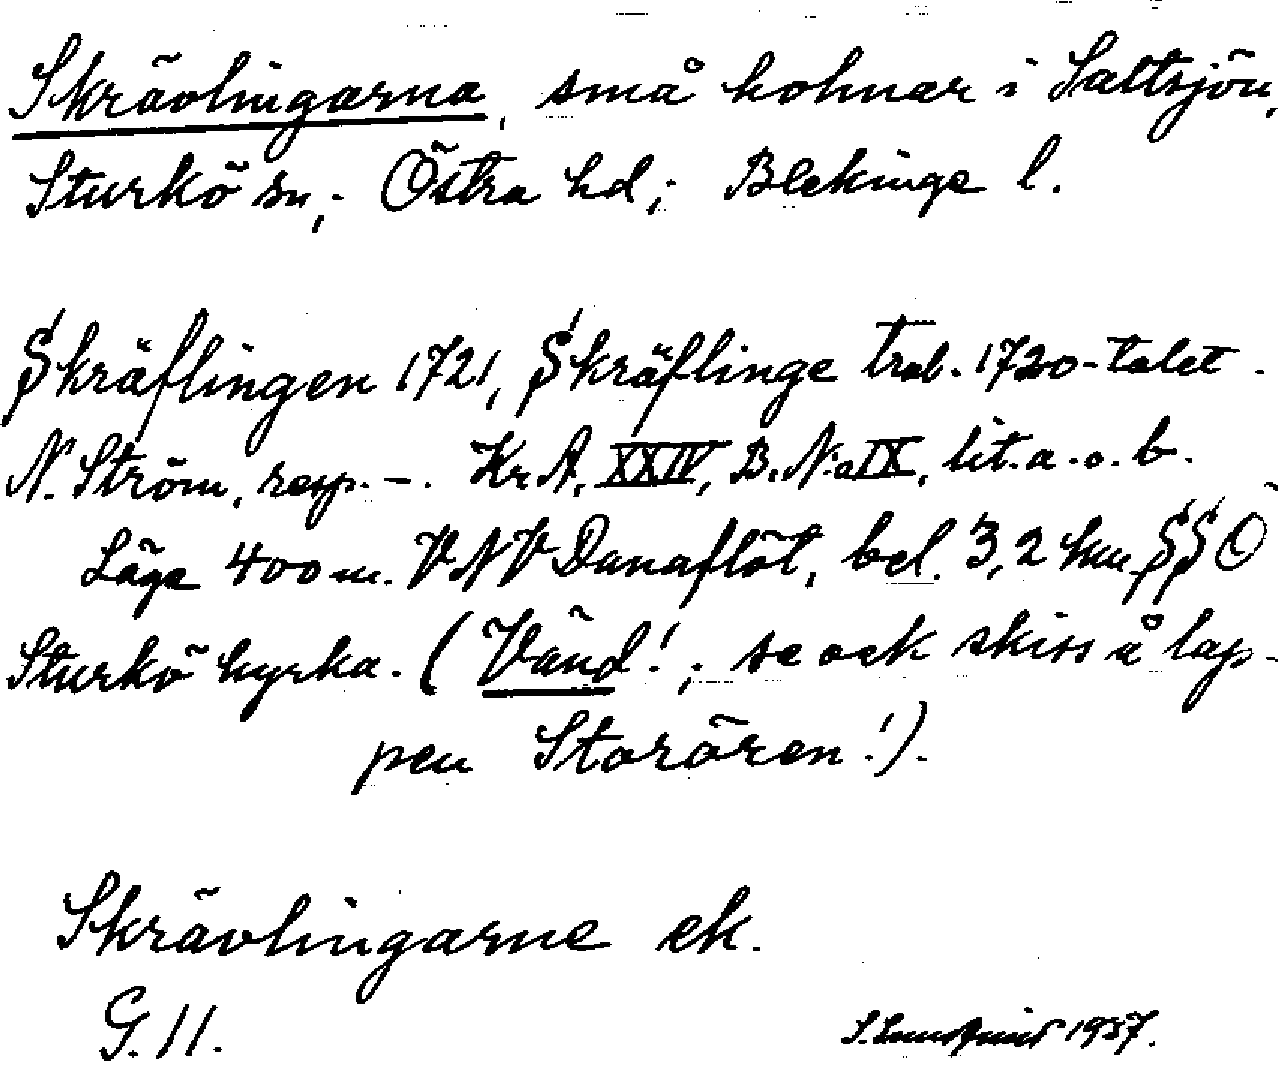 Skrävlingarna, små holmar i Saltsjön,
Sturkö sn, Östra hd; Blekinge l.
Skräflingen 1721, Skräflinge trol. 1720-talet.
N. Ström, resp. -. Kr. A. XXIV, B. No IX, lit. a. o. b.
Läge 400 m. VNV Danaflöt, bel. 3,2 km SSÖ
Sturkö kyrka. (Vänd!; se ock skiss å lap-
pen Storören!).
Skrävlingarne ek.
G. 11.
1937.